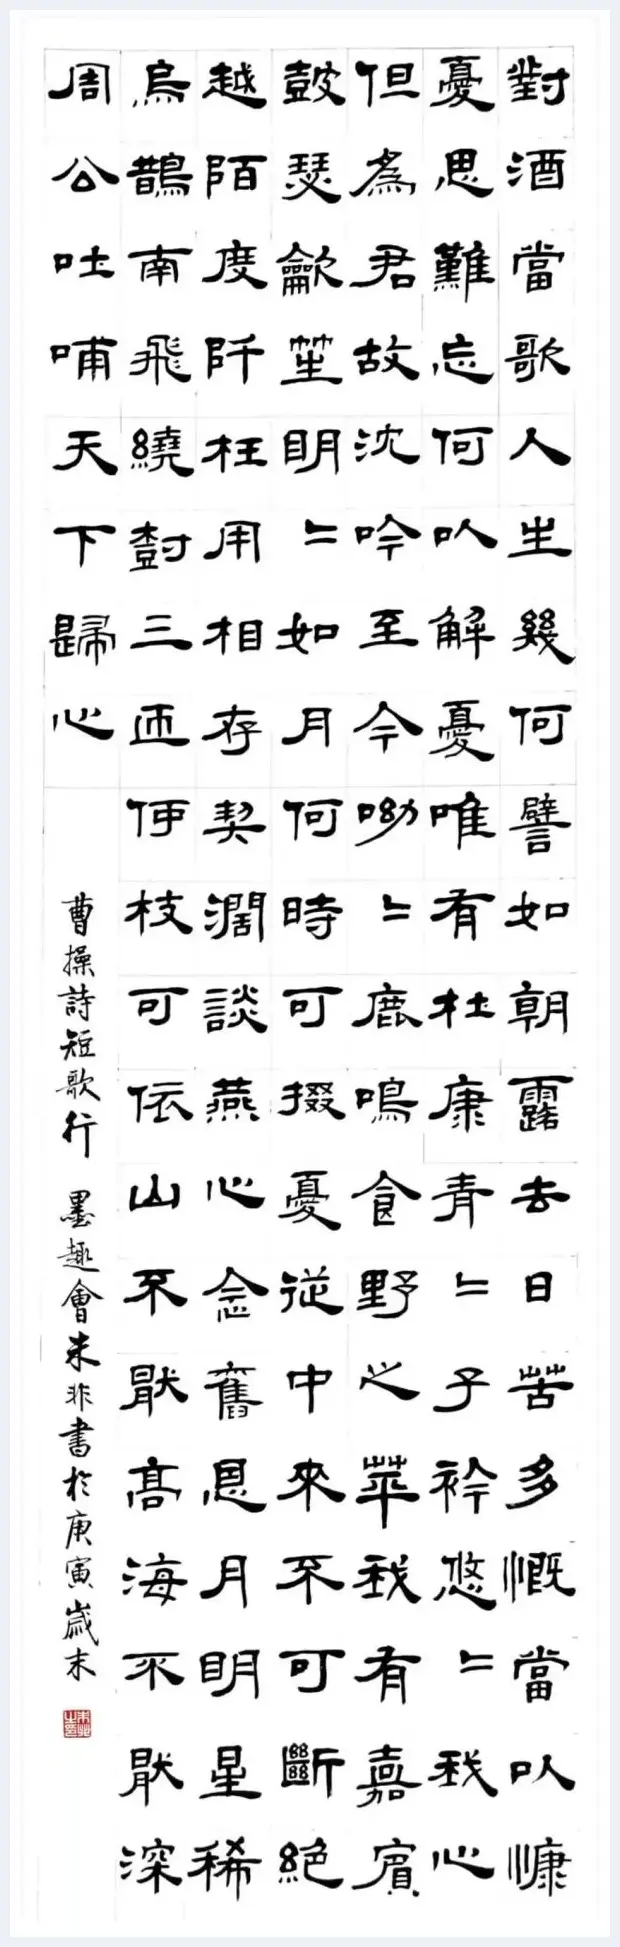 對酒當歌人生幾何譬如朝露去日苦多慨當以慷
憂思難忘何以解憂唯有杜康青〻子衿悠〻我心
但為君故沈吟至今呦〻鹿鳴食野之苹我有嘉賓
鼓瑟龡笙明〻如月何時可掇憂從中來不可斷絕
越陌度阡枉用相存契濶談燕心念舊恩月明星稀
烏鵲南飛繞樹三匝何枝可依山不猒高海不猒深
周公吐哺天下歸心
曹操詩短歌行 墨趣會朱非書於庚寅歲末